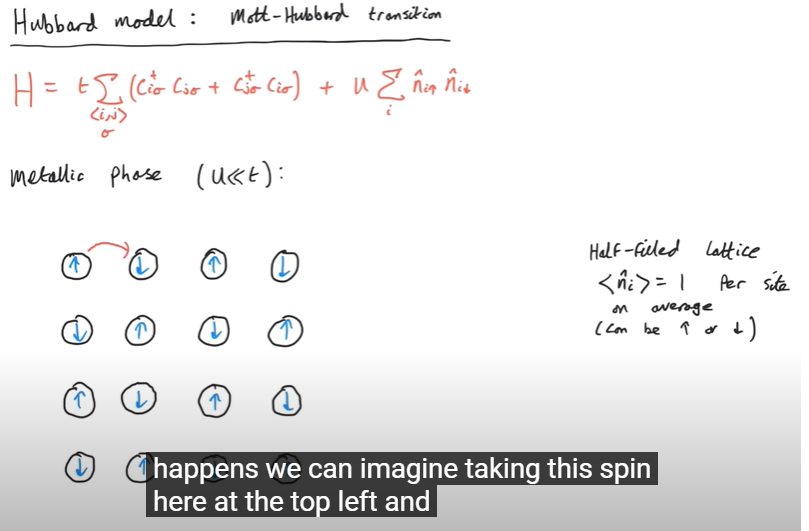 Hubbard model : Mott-Hubbard transition
H = t Σ (c†iσ cjσ + c†jσ ciσ) + u Σ n̂i↑ n̂i↓
<i,j> i
σ
Metallic phase (u≪t):
↑ ↓ ↑ ↓
Half-filled lattice
<n̂i> = 1 per site
on average
(can be ↑ or ↓)
↓ ↑ ↓ ↑
↑ ↓ ↑ ↓
↓ ↑
happens we can imagine taking this spin
here at the top left and